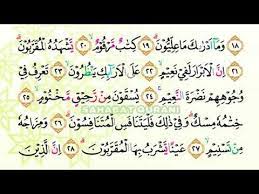 ١٨ وَمَآ أَدْرَىٰكَ مَا عِلِّيُّونَ ١٩ كِتَٰبٌ مَّرْقُومٌ ٢٠ يَشْهَدُهُ ٱلْمُقَرَّبُونَ
٢١ إِنَّ ٱلْأَبْرَارَ لَفِى نَعِيمٍ ٢٢ عَلَى ٱلْأَرَآئِكِ يَنظُرُونَ ٢٣ تَعْرِفُ فِى
وُجُوهِهِمْ نَضْرَةَ ٱلنَّعِيمِ ٢٤ يُسْقَوْنَ مِن رَّحِيقٍ مَّخْتُومٍ ٢٥
SAHABAT QURANI
خِتَٰمُهُۥ مِسْكٌ وَفِى ذَٰلِكَ فَلْيَتَنَافَسِ ٱلْمُتَنَٰفِسُونَ ٢٦ وَمِزَاجُهُۥ
مِن تَسْنِيمٍ ٢٧ عَيْنًا يَشْرَبُ بِهَا ٱلْمُقَرَّبُونَ ٢٨ إِنَّ ٱلَّذِينَ